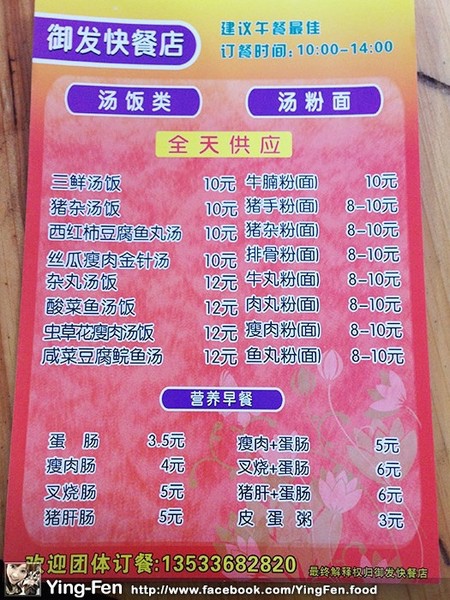 御发快餐店
建议午餐最佳
订餐时间:10:00-14:00
汤饭类
汤粉面
全天供应
三鲜汤饭 10元
猪杂汤饭 10元
西红柿豆腐鱼丸汤 10元
丝瓜瘦肉金针汤 10元
杂丸汤饭 12元
酸菜鱼汤饭 12元
虫草花瘦肉汤饭 12元
咸菜豆腐鲩鱼汤 12元
牛腩粉(面) 10元
猪手粉(面) 8-10元
猪杂粉(面) 8-10元
排骨粉(面) 8-10元
牛丸粉(面) 8-10元
肉丸粉(面) 8-10元
瘦肉粉(面) 8-10元
鱼丸粉(面) 8-10元
营养早餐
蛋 肠 3.5元
瘦肉肠 4元
叉烧肠 5元
猪肝肠 5元
瘦肉+蛋肠 5元
叉烧+蛋肠 6元
猪肝+蛋肠 6元
皮 蛋 粥 3元
欢迎团体订餐:13533682820
最终解释权归御发快餐店
Ying-Fen http://www.facebook.com/YingFen.food